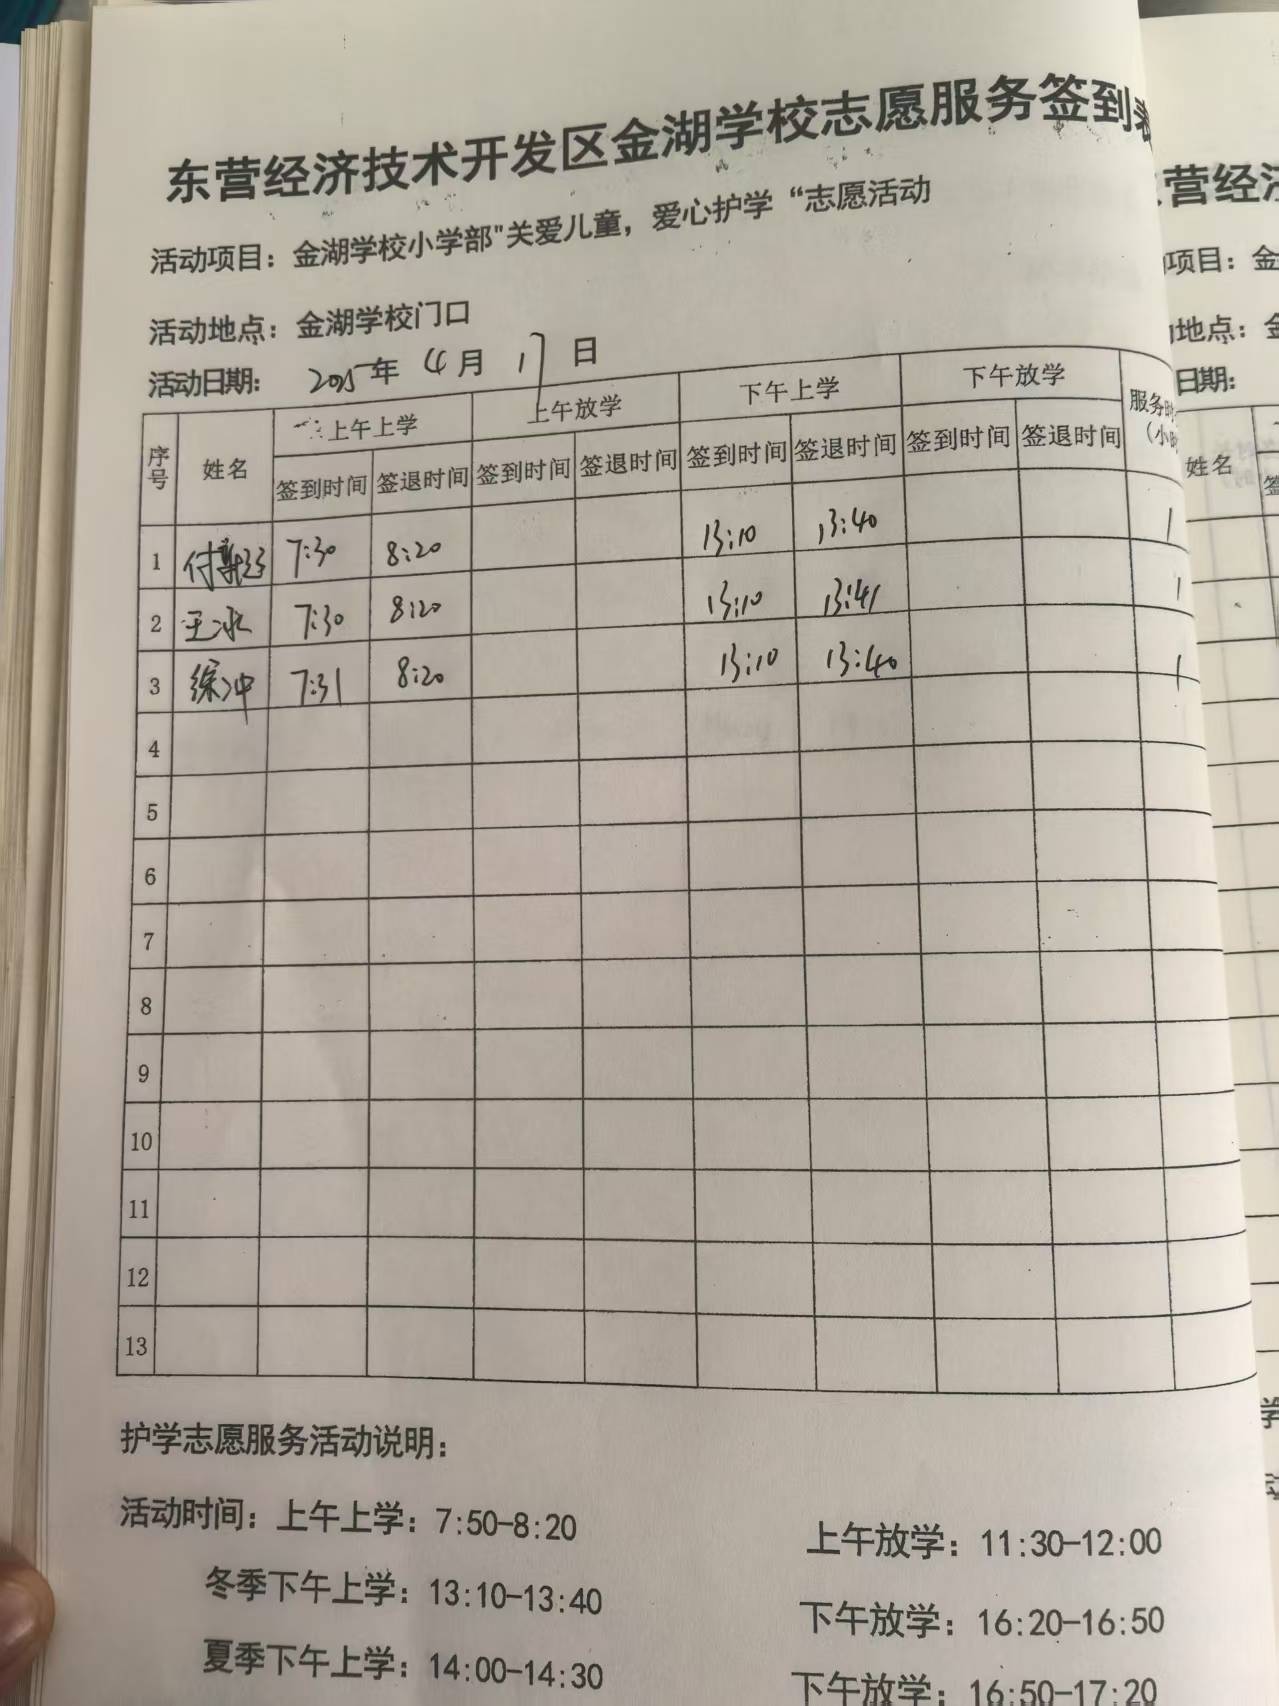 东营经济技术开发区金湖学校志愿服务签到表
活动项目：金湖学校小学部"关爱儿童，爱心护学“志愿活动
活动地点：金湖学校门口
活动日期： 2025年 4月 17日
序号 姓名 上午上学 上午放学 下午上学 下午放学 服务时
签到时间 签退时间 签到时间 签退时间 签到时间 签退时间 签到时间 签退时间 （小时
1 付 7:30 8:20 13:10 13:40 1
2 王冰 7:30 8:20 13:10 13:41 1
3 徐冲 7:31 8:20 13:10 13:40 1
4
5
6
7
8
9
10
11
12
13
护学志愿服务活动说明：
活动时间：上午上学：7:50-8:20 上午放学：11:30-12:00
冬季下午上学：13:10-13:40 下午放学：16:20-16:50
夏季下午上学：14:00-14:30 下午放学：16:50-17:20
营经济
项目：金
地点：金
日期：
姓名